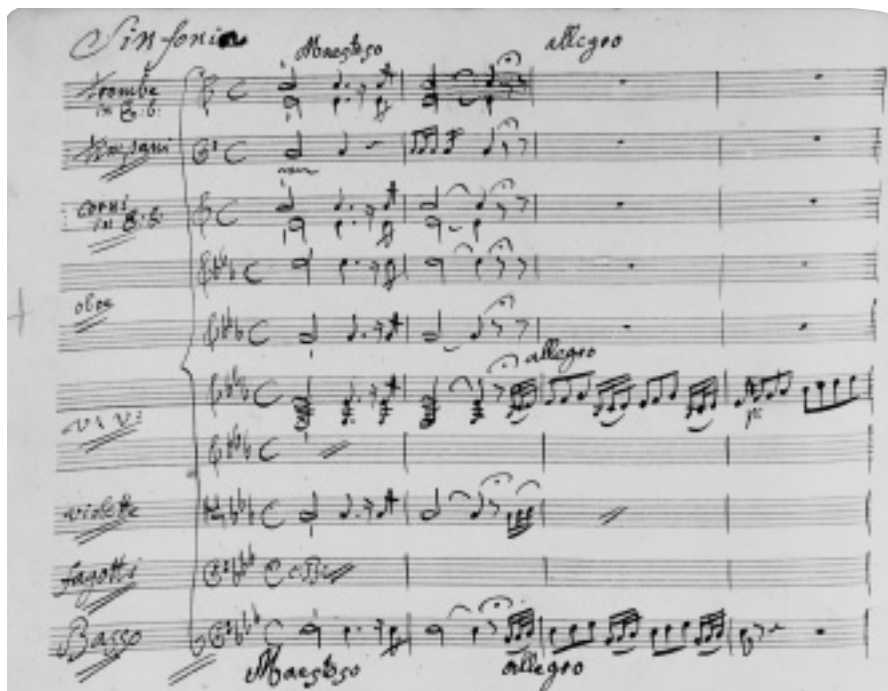 Sinfonia
Maestoso
allegro
Trombe
in E. b:
Timpani
Corni
in E. b:
oboe
allegro
V: V:
violette
fagotti
Basso
Maestoso
allegro